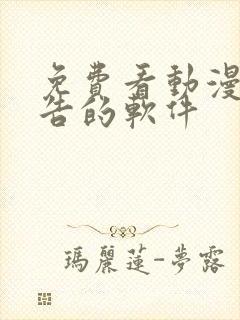 免費看動漫
告的軟件
瑪麗蓮-夢露